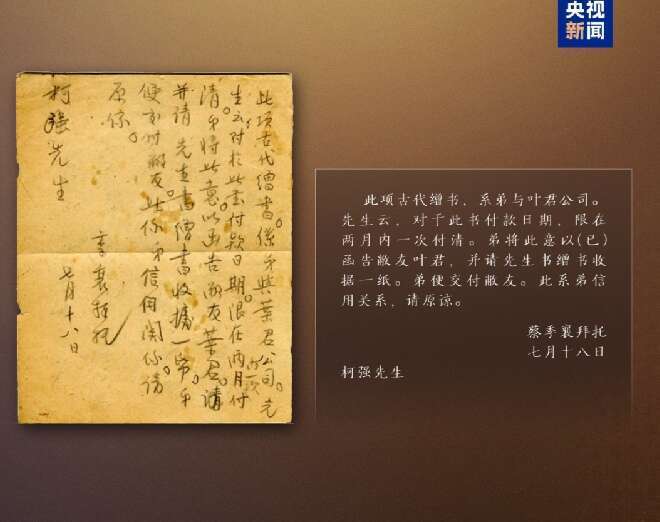 央视
新闻
此項古代缯書。係弟與葉君公司。先
生云対於此書付款日期。限在两月内一次付
清。弟将此意以函告敝友葉君。請
并请 先生書缯書收據一帋。弟
便交付敝友。此係弟信用関係請
原谅。
季襄拜托
七月十八日
柯强先生
此项古代缯书、系弟与叶君公司。
先生云、对于此书付款日期、限在
两月内一次付清。弟将此意以(已)
函告敝友叶君、并请先生书缯书收
据一纸。弟便交付敝友。此系弟信
用关系、请原谅。
蔡季襄拜托
七月十八日
柯强先生